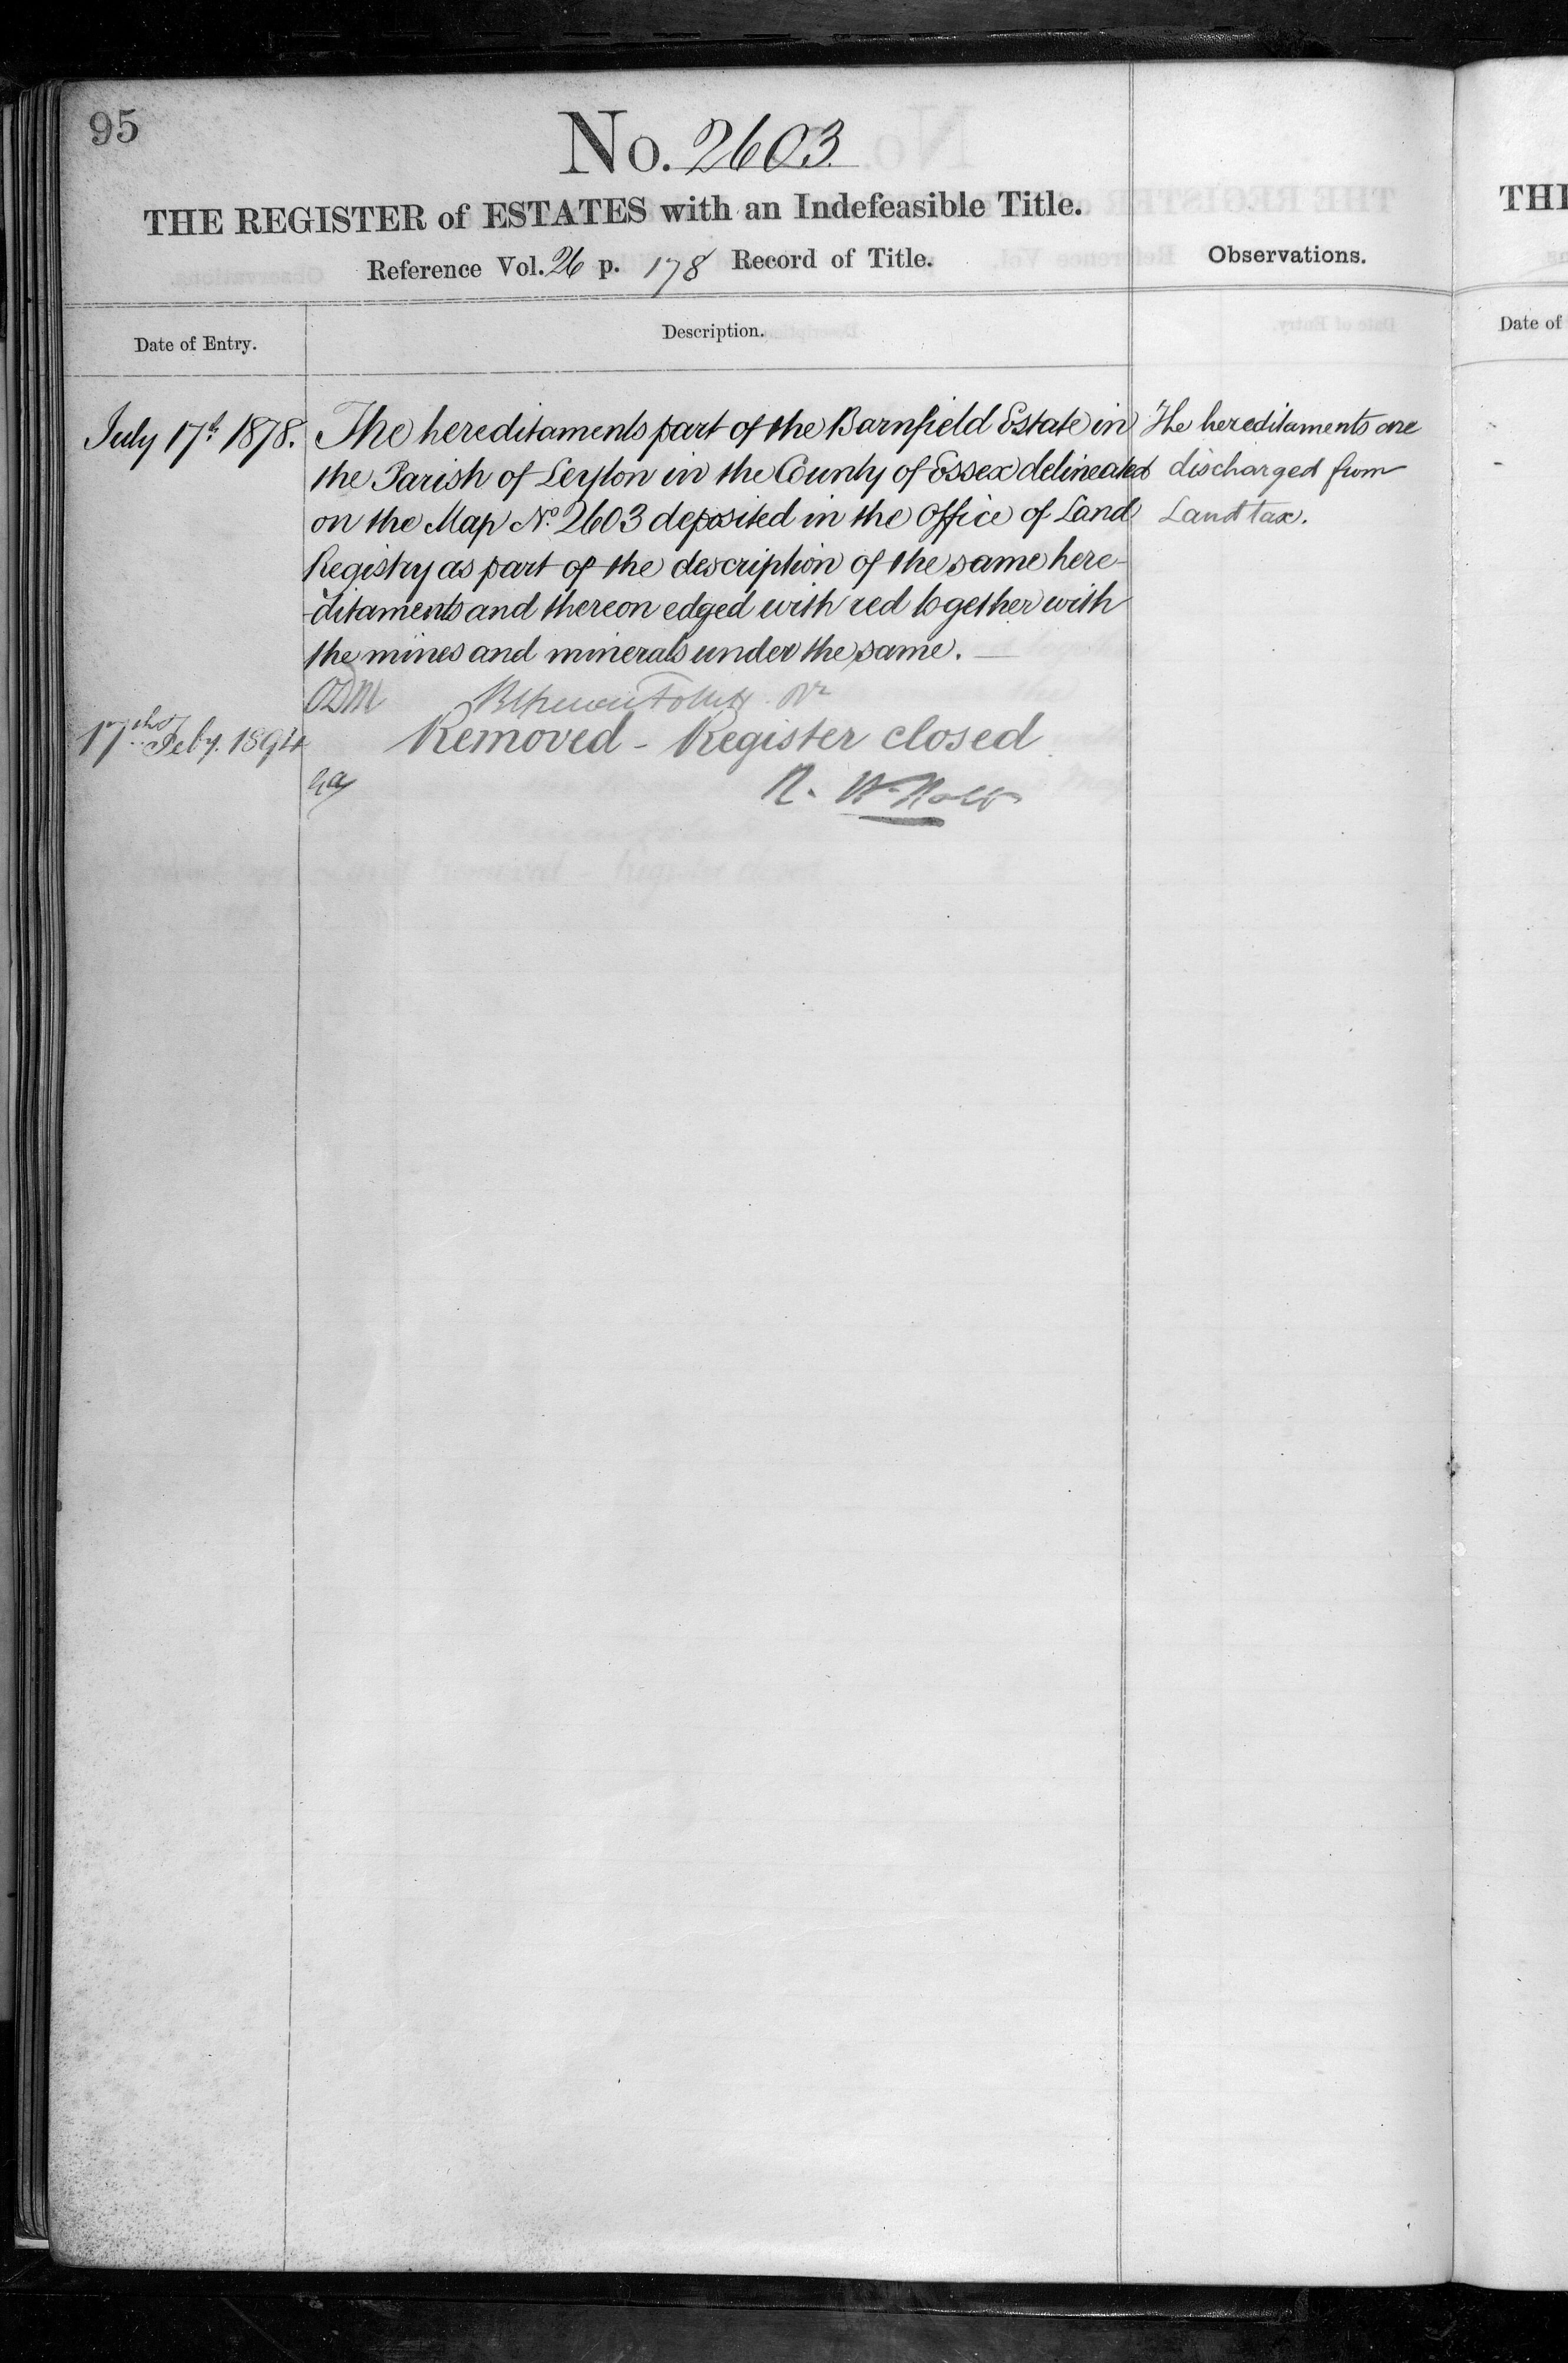 95
No. 2603
THE REGISTER of ESTATES with an Indefeasible Title.
Reference Vol. 26 p. 178 Record of Title.
Observations.
Date of Entry.
Description.
July 17th 1878.
The hereditaments part of the Barnfield Estate in
the Parish of Leyton in the County of Essex delineated
on the Map No. 2603 deposited in the Office of Land
Registry as part of the description of the same here-
-ditaments and thereon edged with red together with
the mines and minerals under the same.
The hereditaments are
discharged from
Land tax.
17th Feby. 1894
Removed - Register closed
THE
Date of